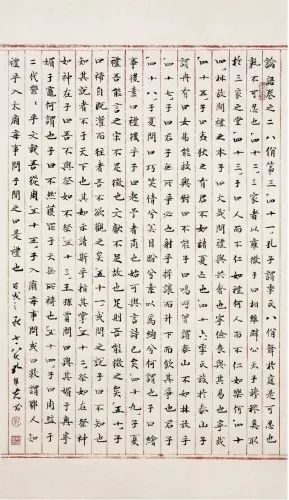 論語卷之二八佾第三四十一孔子謂季氏八佾舞於庭是可忍也
孰不可忍也四十二三家者以雍徹子曰相維辟公天子穆穆奚取
於三家之堂四十三子曰人而不仁如禮何人而不仁如樂何四十
四林放問禮之本子曰大哉問禮與其奢也寧儉喪與其易也寧戚
四十五子曰夷狄之有君不如諸夏之亡也四十六季氏旅於泰山子
謂冉有曰女弗能救與對曰不能子曰嗚呼曾謂泰山不如林放乎
四十七子曰君子無所爭必也射乎揖讓而升下而飲其爭也君子
四十八子夏問曰巧笑倩兮美目盼兮素以為絢兮何謂也子曰繪
事後素曰禮後乎子曰起予者商也始可與言詩已矣四十九子曰夏
禮吾能言之宋不足徵也文獻不足故也足則吾能徵之矣五十子
曰禘自既灌而往者吾不欲觀之矣五十一或問禘之說子曰不知也
知其說者之於天下也其如示諸斯乎指其掌五十二祭如在祭神
如神在子曰吾不與祭如不祭五十三王孫賈問曰與其媚于奧寧
媚于竈何謂也子曰不然獲罪于天無所禱也五十四子曰周監于
二代郁郁乎文哉吾從周五十五子入廟每事問或曰孰謂鄹人知
禮乎入大廟每事問子聞之曰是禮也